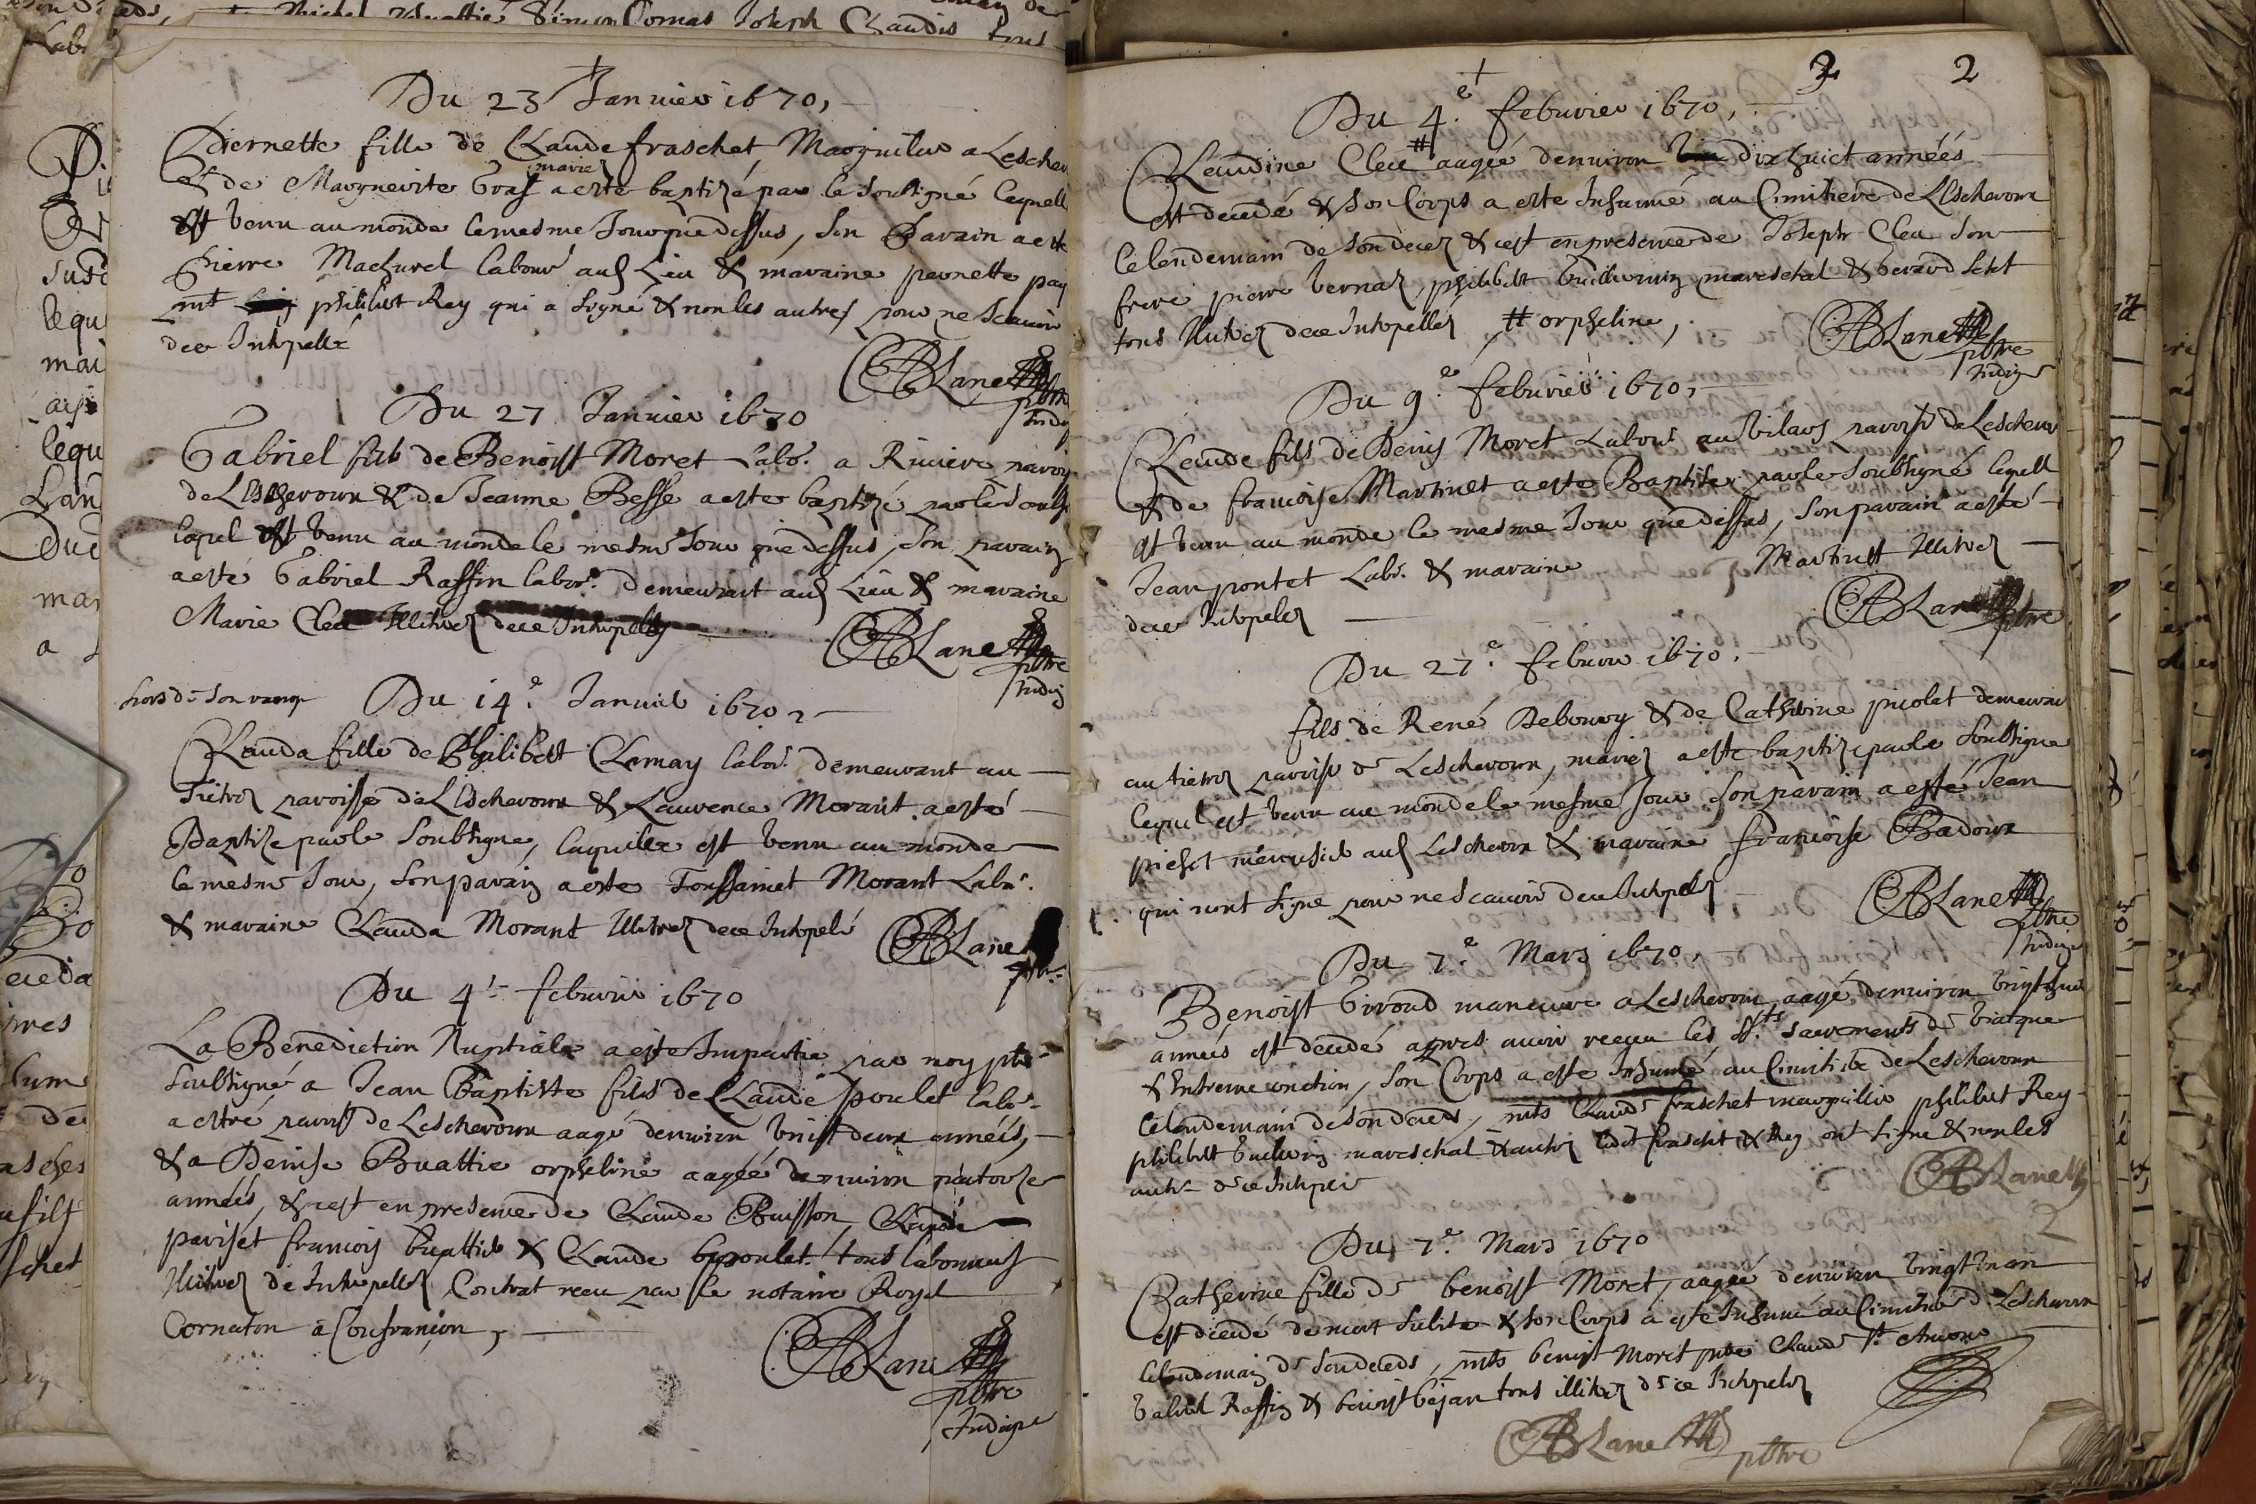 Du 23 Januier 1670,
Piernette fille de Claude fraschet Marguilier a Lescher
mariez
& de Marguerite Gras a este baptizé par le soubsigné
est venu au monde le mesme Jour que dessus, son Parain a este
Pierre Machurel labour aud Lieu & maraine pernette
philibert Rey qui a signé & non les autres pour ne scauoir
de ce Interpellé
ABLanet
pbtre
Indig
Du 27 Januier 1670
Gabriel fils de Benoist Moret labo. a Riuiere
de Lescheroux & de Jeanne Besse a este baptizé par le soubs
lequel est venu au monde le mesme Jour que dessus, son parain
a esté Gabriel Raffin labor. demeurant aud Lieu & maraine
Marie Clea Illitrez de ce Interpellez
ABLanet
pbtre
Indig
hors de son rang
Du 14e. Januier 1670,
Clauda fille de Philibert labor. demeurant au
paroisse de Lescheroux & Laurence Morant a esté
Baptize par le soubsigne, laquelle est venu au monde
le mesme Jour, son parain a este Toussainct Morant Labr.
& maraine Clauda Morant Illitrez de ce Interpelé
ABLane
Du 4e feburier 1670
La Benediction Nuptiale a este Impartie par moy pbtre
soubsigné a Jean Baptiste fils de Claude poulet labo.
a estré parroisse de Lescheroux aagé denuiron vingt deux années,
& a Denise Buattie orpheline aagée denuiron quatorze
années, & c'est en presence de Claude Buisson, Claude
pariset francois buattier & Claude poulet tous laboureurs
Illitrez de Interpellez Contrat receu par le notaire Royal
Cornaton a Confrançon,
ABLanet
pbtre
Indigne
2
Du 4e. febuvier 1670,
Claudine Clea # aagée denuiron dixhuict années
est decedé & son Corps a este Inhumé au Cimitiere de Lescheroux
le lendemain de son decez & cest en presence de Joseph Clea son
frere pierre bernaz, philibert Guillermin mareschal & berard
tous Illitrez de ce Interpellez # orpheline,
ABLanet
pbtre
Indigne
Du 9e. febuvier 1670,
Claude fils de Denis Moret Labour au vilars paroisse de Lescheroux
& de francoise Martinet a este Baptisé par le soubsigné lequel
est venu au monde le mesme Jour que dessus, son parain a esté
Jean pontet Labr. & maraine Martinet Illitrez
de ce Interpelez
ABLanet
pbtre
Du 27e. febuvier 1670,
fils de René Debourg & de Catherine picolet demeurant
au paroisse de Lescheroux, mariez a este baptizé par le soubsigne
lequel est venu au monde le mesme Jour son parain a esté Jean
aud Lescheroux & maraine francoise Badoux
qui n'ont signe pour ne scauoir de ce Interpelez
ABLanet
pbtre
Indigne
Du 7e. Mars 1670,
Benoist Giroud maneuure a Lescheroux aagé denuiron
années est decedé apres auoir receu les Sts. sacrements de viatique
& Extreme onction, son Corps a este Inhumé au Cimitiere de Lescheroux
le lendemain de son deces, pnts Claude fraschet marguillier philibert Rey
philibert mareschal & autres ledit fraschet & Rey ont signe & non les
autres de ce Interpelé
ABLanet
Du 7e. Mars 1670
Catherine fille de benoist Moret, aagée denuiron vingt un an
est decedé de mort subite & son Corps a esté Inhumé au Cimitiere de Lescheroux
le lendemain de son deces, pnts benoist Moret pere Claude
Gabriel Raffin & benoist bejan tous illitrez de ce Interpelez
ABLanet
pbtre